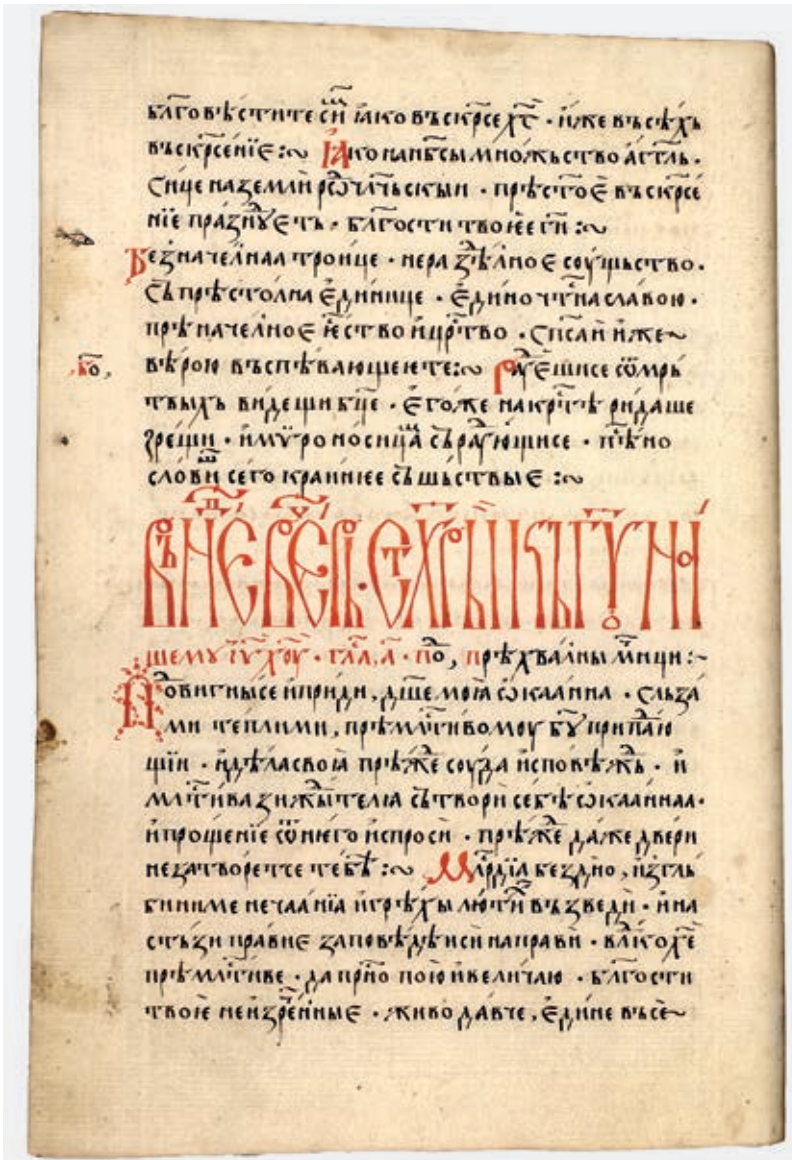 бл҃говѣстите сїи ꙗко въскр҃се хс҃ · иже въсѣхь
въскр҃сенїе :~ Ꙗко на нб҃сы множьство агг҃ль ·
Сице на земли рѡд чл҃чьскыи · прѣсто е въскр҃се
нїе празнꙋеть · бл҃гости твоѥе гн҃ :~
Безначелнаа троице · нераздѣлное соущьство ·
Съпрѣстолна единице · единочтⷭ҇на славою ·
прѣначелное ѥство и црⷭ҇тво · Сп҃саи иже~
бⷪ҇,
вѣрою въспѣвающеѥ те:~ Раⷣуе шисе ѿ мрь
твыхь видещи бц҃е · Егоже на крⷭ҇тѣ ридаше
зрещи · и мѵроносицⷨа сърадующисе · пѣсно
словⷲи сего краинѥе съшьствые :~
Въ нⷣе веⷱ҇ерь · стⷯры
шему іѵ҃ хв҃оу · гла, а · пⷣо, прѣхвалны мⷱ҇ници :~
Подвигнысе и приди, дш҃е моꙗ ѡкааннаа · сльза
ми теплими, прѣмлⷭ҇тивомоу бу҃ припаⷣаю
щїи · и дѣла своꙗ прѣжⷣе соуда исповѣжⷣь · и
млⷭ҇тива зижⷣителꙗ сътвори себѣ ѡкааннаа ·
и прощенїе ѿ нѥго испроси · прѣжⷣе даже двери
не затворетсе тебѣ :~ Млⷭ҇рдїа бездно, изглъ
бини ме нечаанїа и грѣхы лютⷯи възведи · и на
стьзи правиѥ заповѣдѥи си направи · влⷣко хⷭ҇е
прѣмлⷭ҇тиве · да прⷭ҇но пою и величаю · бл҃гости
твоѥ неизреⷱ҇нные · живодавче, едине въсе~